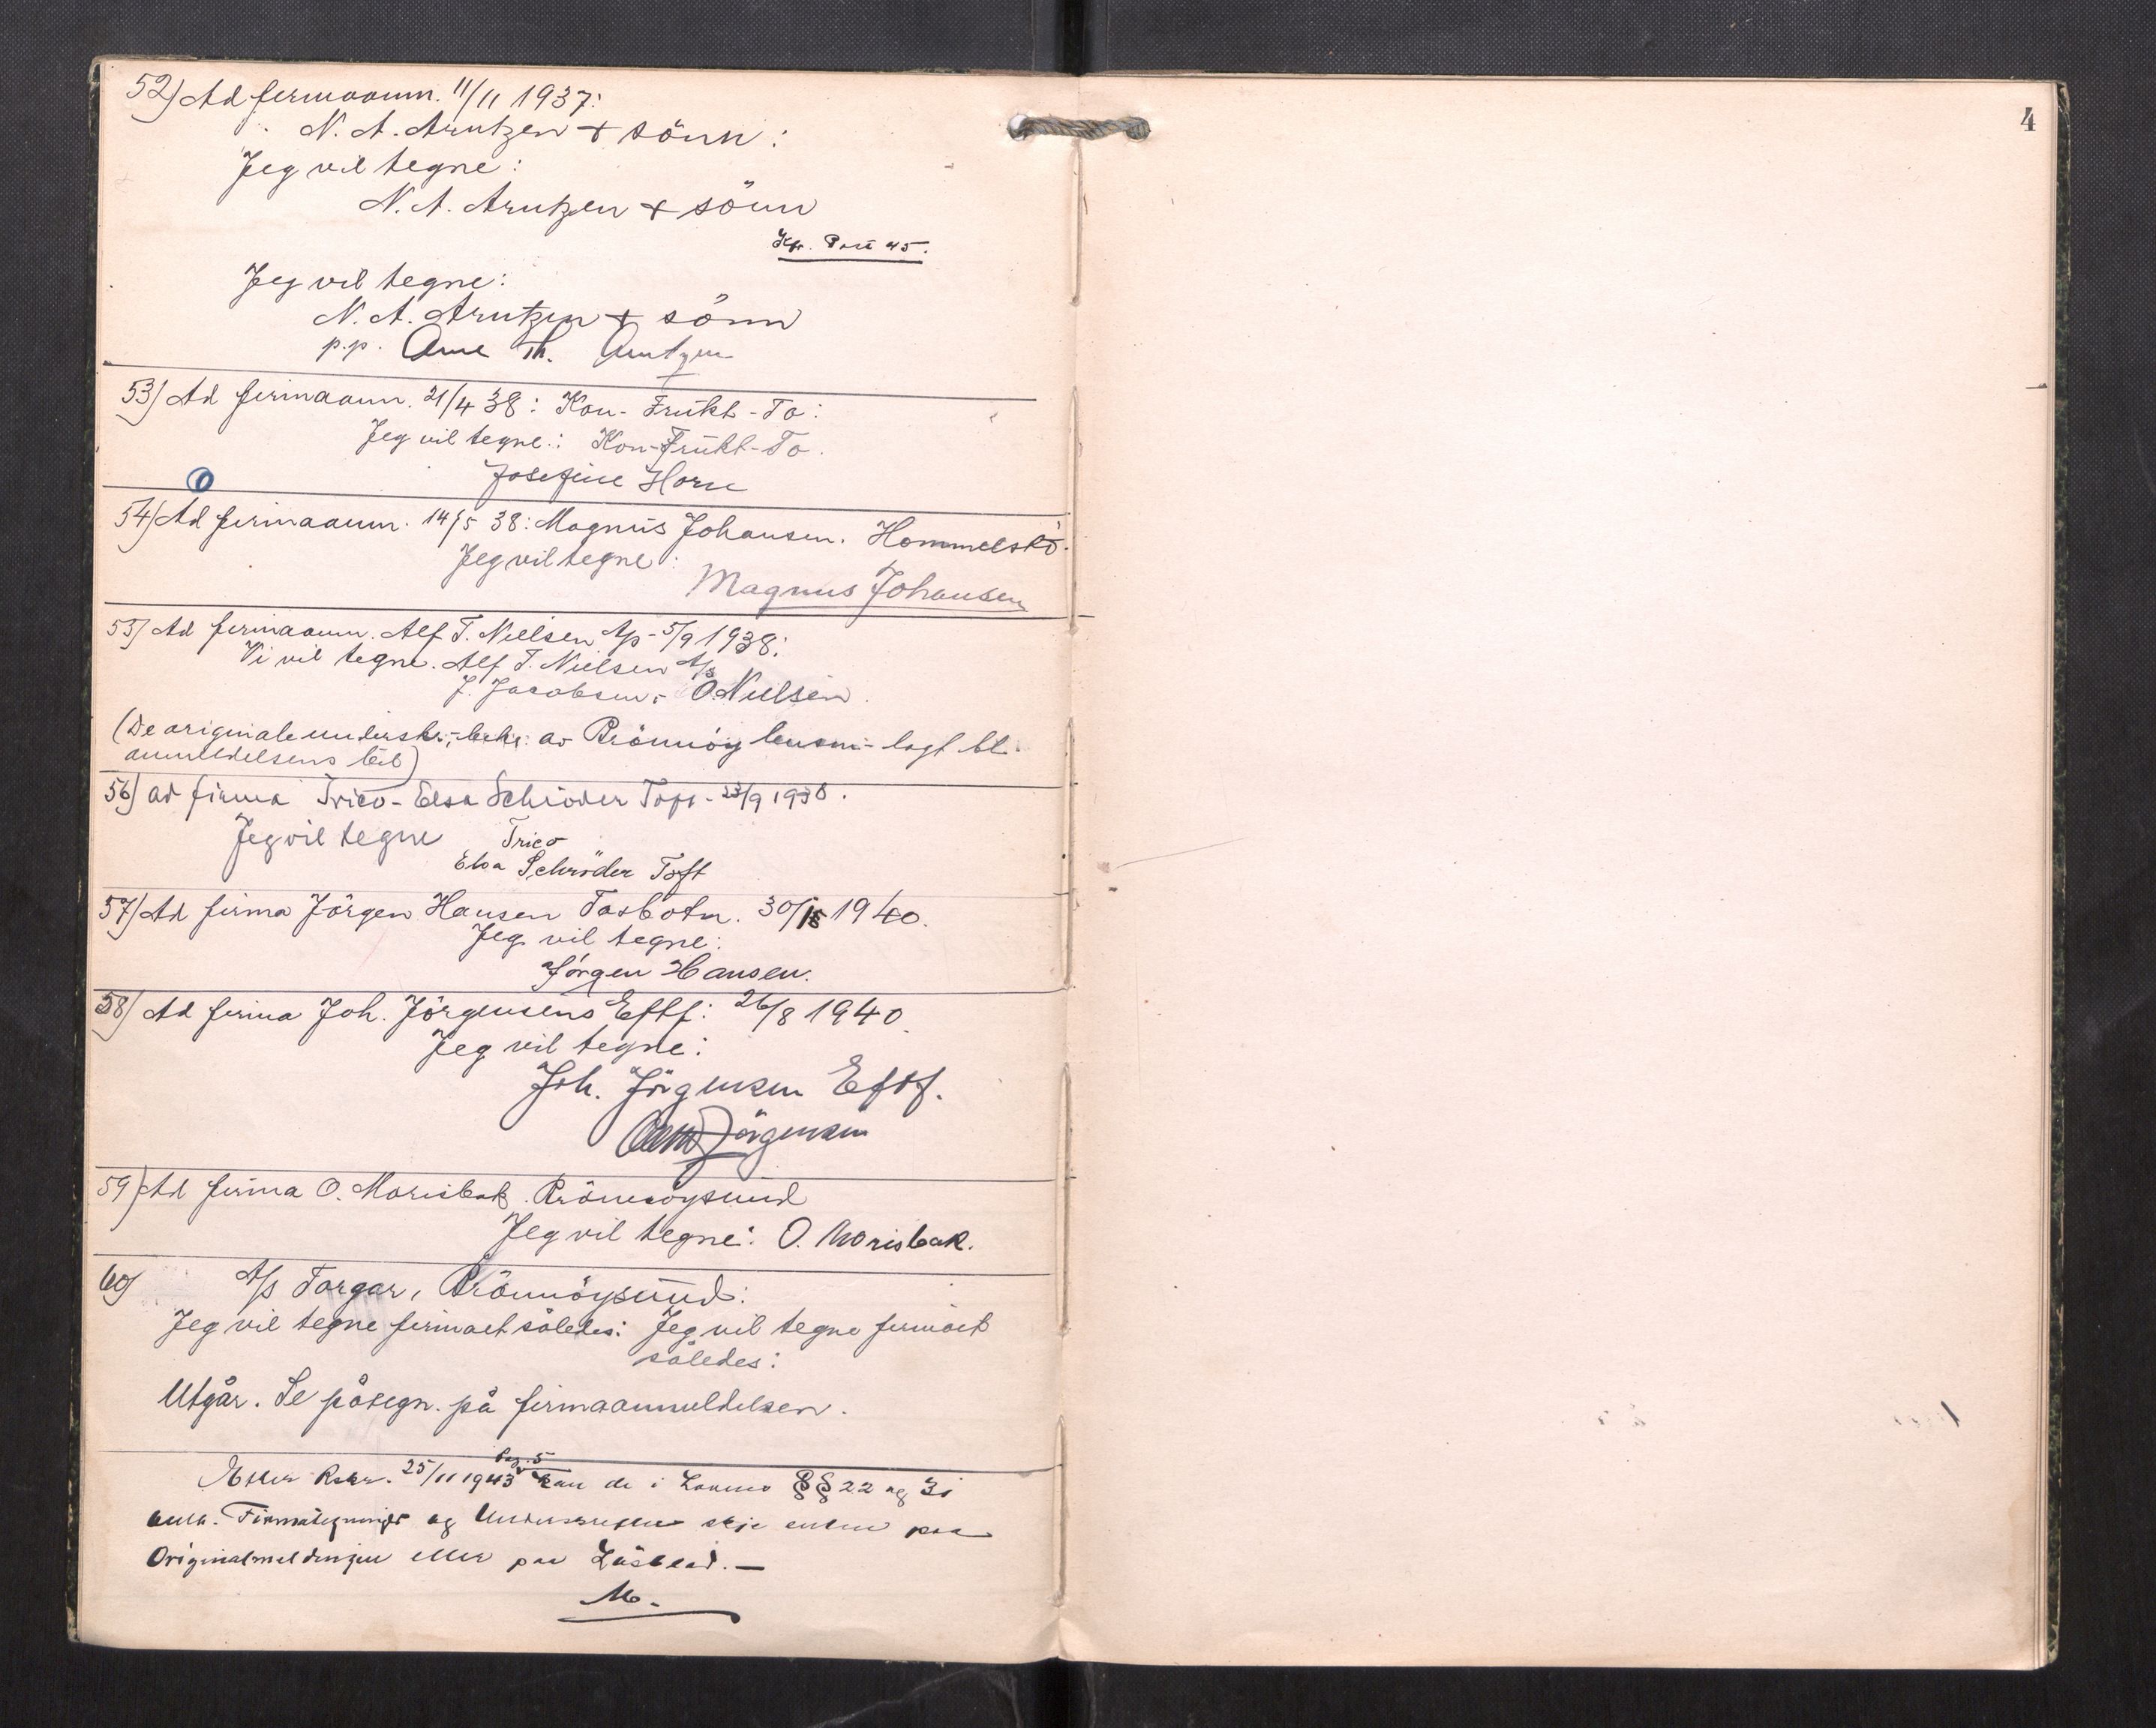 52) Ad firmaanm. 11/11 1937:
N. A. Arntzen + sönn:
Jeg vil tegne:
N. A. Arntzen + sönn
Jfr. Post 45.
Jeg vil tegne:
N. A. Arntzen + sönn
p.p. Arne Th. Arntzen
53) Ad firmaanm. 21/4 38: Kon-Frukt-To:
Jeg vil tegne: Kon-Frukt-To.
Josefine Horn
54) Ad firmaanm. 14/5 38: Magnus Johansen. Hommelstö.
Jeg vil tegne:
Magnus Johansen
55) Ad firmaanm. Alf T. Nielsen A/s - 5/9 1938:
Vi vil tegne. Alf T. Nielsen A/s
J. Jacobsen, O. Nielsen.
(De originale underskr., bekr. av Brönnöy lensm. lagt bl.
anmeldelsens bil)
56) ad firma Trico - Elsa Schröder Toft - 23/9 1938.
Jeg vil tegne Trico
Elsa Schröder Toft
57) Ad firma Jörgen Hansen Tosbotn. 30/ 1940.
Jeg vil tegne:
Jörgen Hansen.
58) Ad firma Joh. Jörgensens Eftf: 26/8 1940.
Jeg vil tegne:
Joh. Jörgensen Eftf.
Jörgensen
59) Ad firma O. Morisbak. Brönnöysund
Jeg vil tegne: O. Morisbak.
60) A/s Torgar, Brönnöysund:
Jeg vil tegne firmaet således: Jeg vil tegne firmaet
således:
Utgår. Se påtegn. på firmaanmeldelsen.
Pag. 5
Efter Rskr. 25/11 1943 kan de i Lovens §§ 22 og 3i
omh. Firmategninger og Underskrifter skje enten paa
Originalmeldingen eller paa Lösblad. —
M.
4